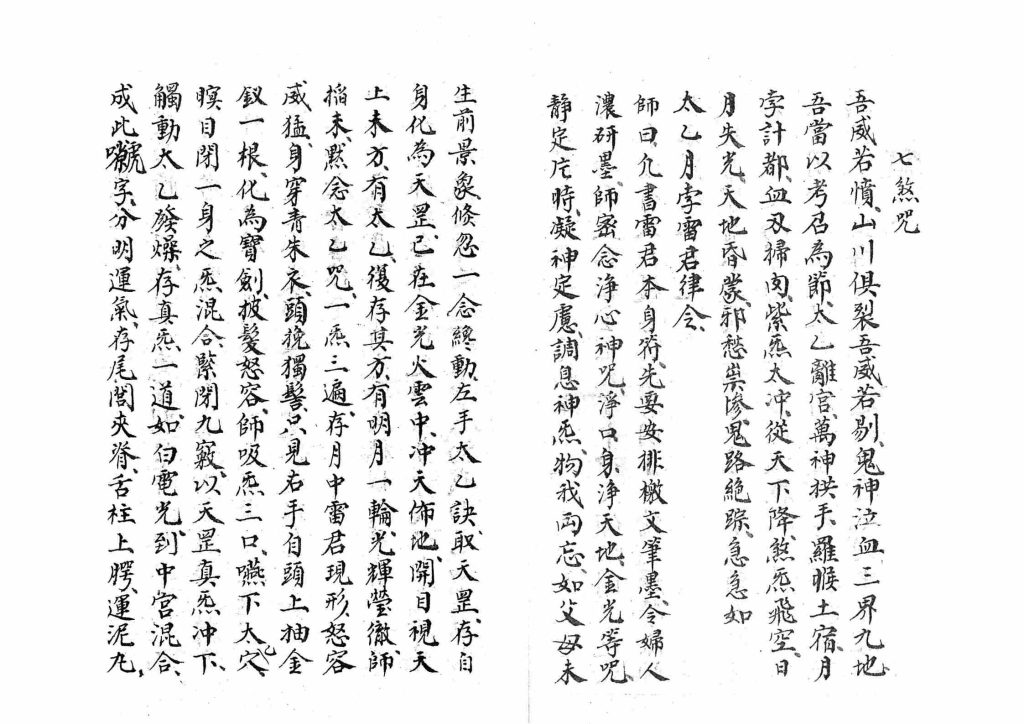 七煞咒
吾威若憤、山川俱裂、吾威若剔、鬼神泣血、三界九地、
吾當以考召為節、太乙離宮、萬神拱手、羅睺土宿、月
孛計都、血刃掃肉、紫炁太冲、從天下降、煞炁飛空、日
月失光、天地昏蒙、邪愁祟惨、鬼路絕踪、急急如
太乙月孛雷君律令、
師曰、凢書雷君本身符、先要安排檄文筆墨、令婦人
濃研墨、師密念淨心神咒、淨口、身、淨天地、金光等咒、
静定片時、凝神定慮、調息神炁、物我両忘、如父母未
生前景象、倏忽一念終動、左手太乙訣、取天罡、存自
身化為天罡、已在金光火雲中、冲天佈地、開目視天
上未方、有太乙、復存其方、有明月一輪、光輝瑩徹、師
掐未、黙念太乙咒、一炁三遍、存月中雷君現形、怒容
威猛、身穿青朱衣、頭挽獨髻、只見右手自頭上抽金
釵一根、化為寶劍、披髮怒容、師吸炁三口、嚥下太乙穴、
瞑目閉一身之炁混合、緊閉九竅、以天罡真炁冲下、
觸動太乙發燥、存真炁一道、如白電光、到中宮混合、
成此號字、分明運氣、存尾閭夾脊、舌柱上腭、運泥丸、